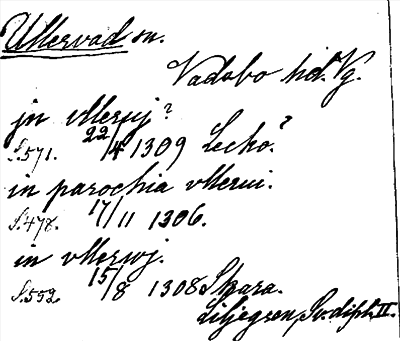 Ullervad sn.
Vadsbo hd. Vg.
jn vllerwj?
S. 571. 22/4 1309 Leckö?
in parochia vllerui.
S. 478. 17/11 1306.
in vllerwj.
S. 552. 15/8 1308 Skara.
Liljegren, Sv. dipl. II.